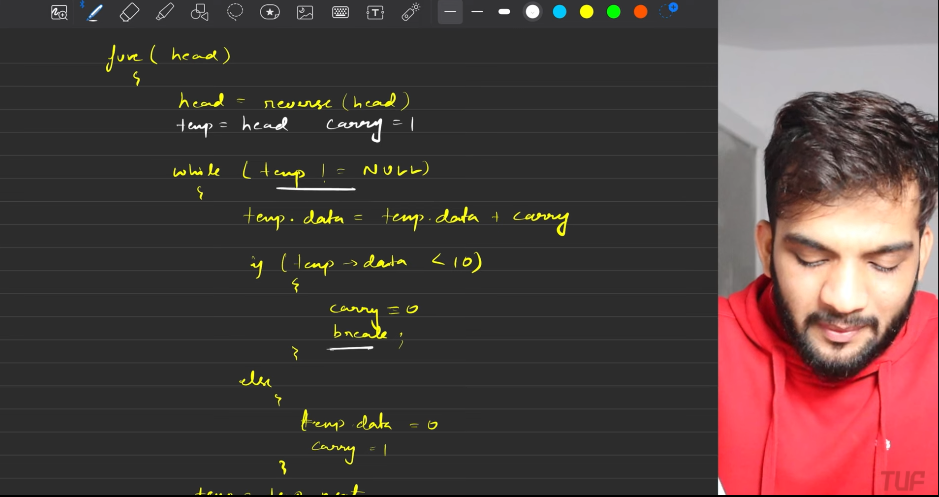 func( head)
{
head = reverse(head)
temp = head carry = 1
while ( temp ! = NULL)
{
temp.data = temp.data + carry
if (temp → data < 10)
{
carry = 0
break ;
}
else
{
temp.data = 0
carry = 1
}
temp = temp.next
TUF